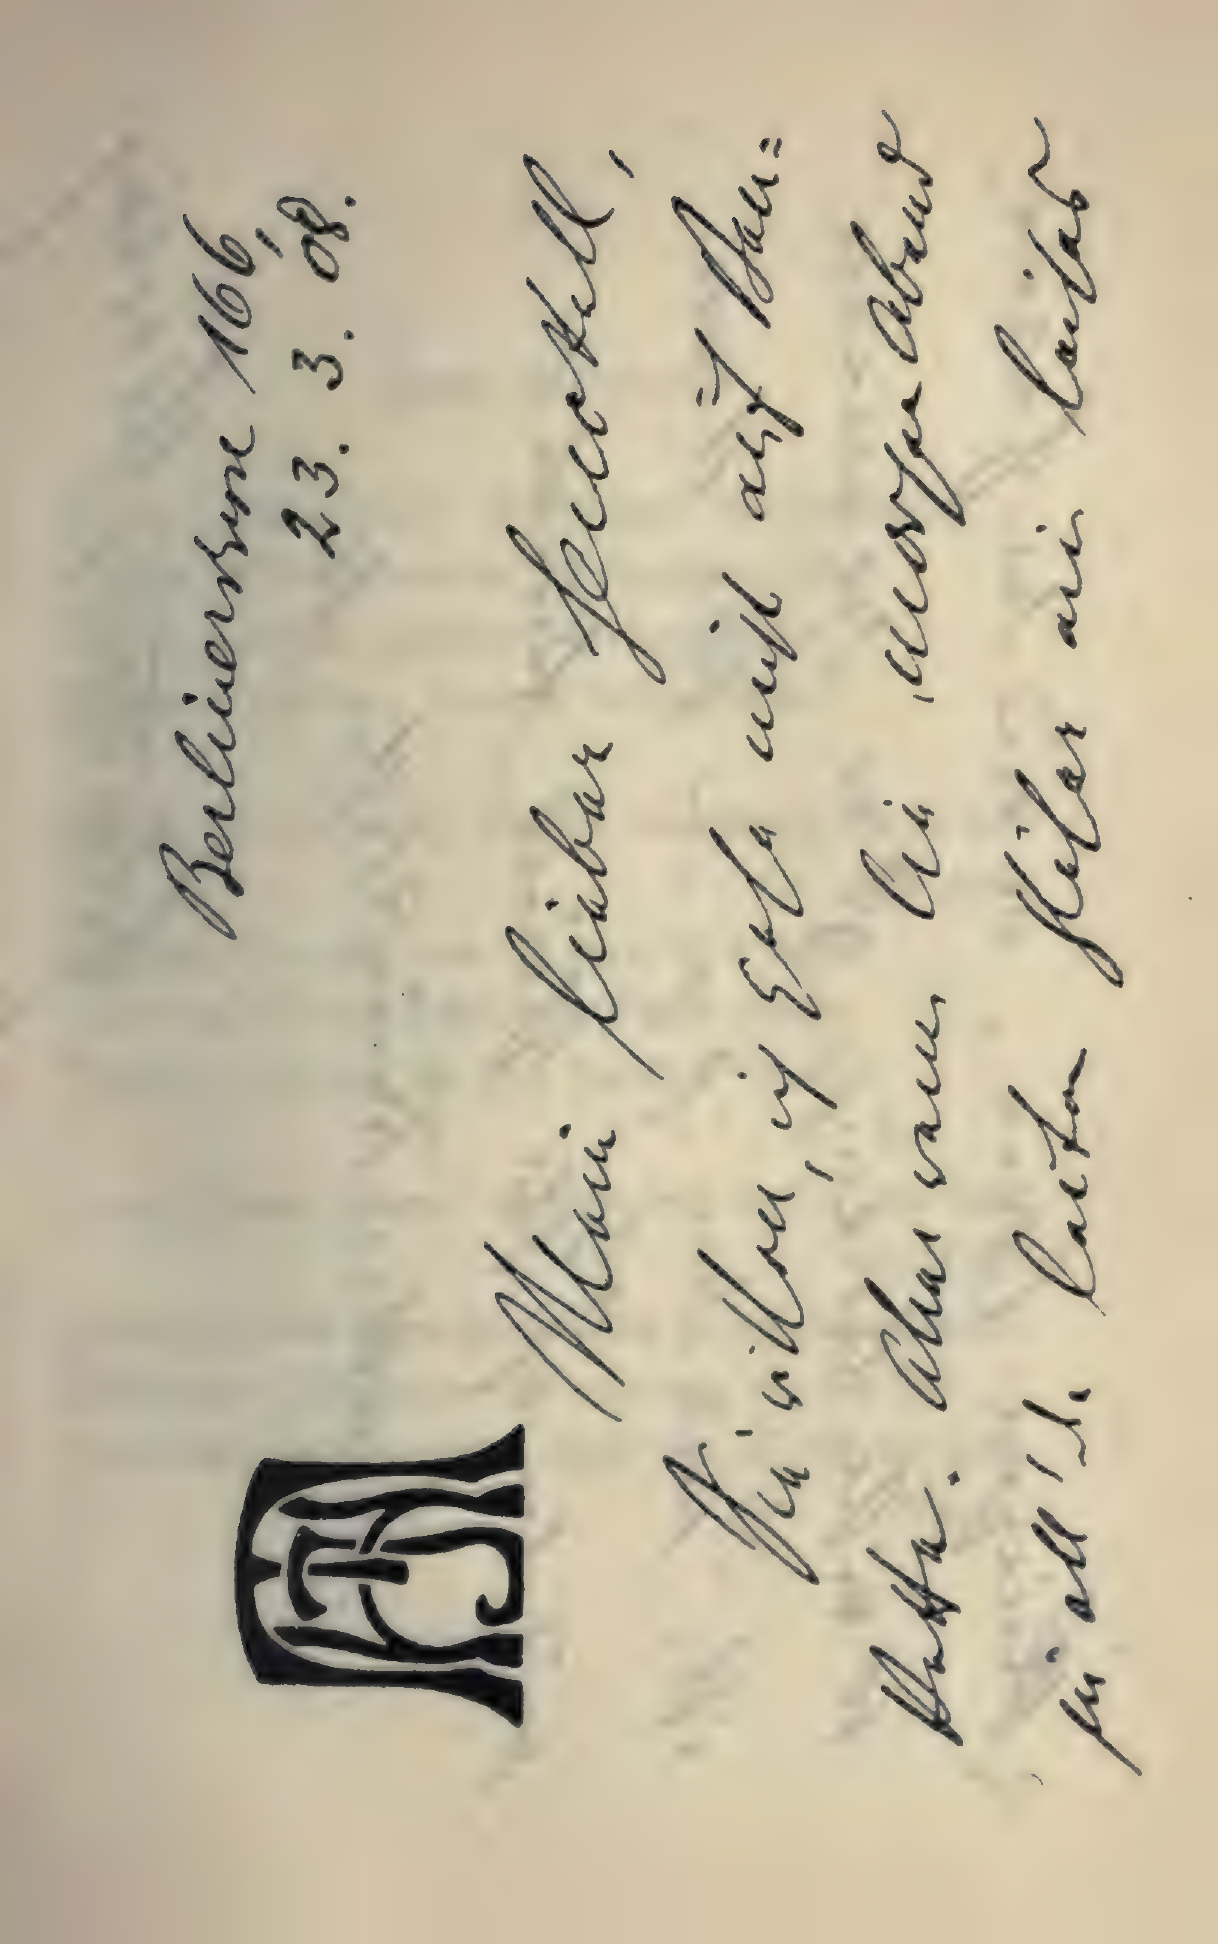 Berlinerstr 166
23. 3. 08.
Mein lieber Henckell,
Sie wissen, ich gehe nicht auf Ban=
kette. Aber wenn Sie morgen Abend
all' d. lauten Gläser ein leises